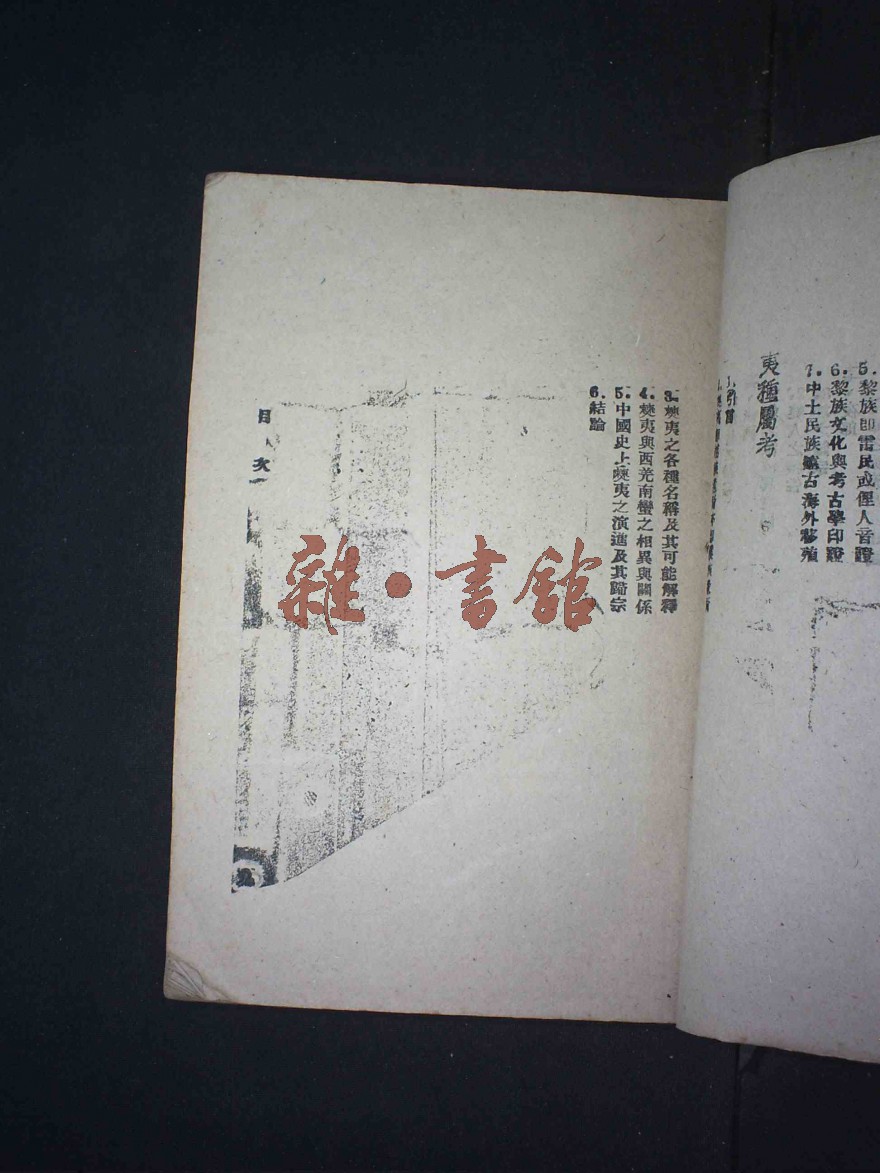 5. 黎族即雷民或俚人音證
6. 黎族文化與考古學印證
7. 中土民族 古海外移殖
夷種屬考
1. 引言
3. 僰夷之各種名稱及其可能解釋
4. 僰夷與西羌南蠻之相異與關係
5. 中國史上僰夷之演進及其 宗
6. 結論
目次
雜·書館